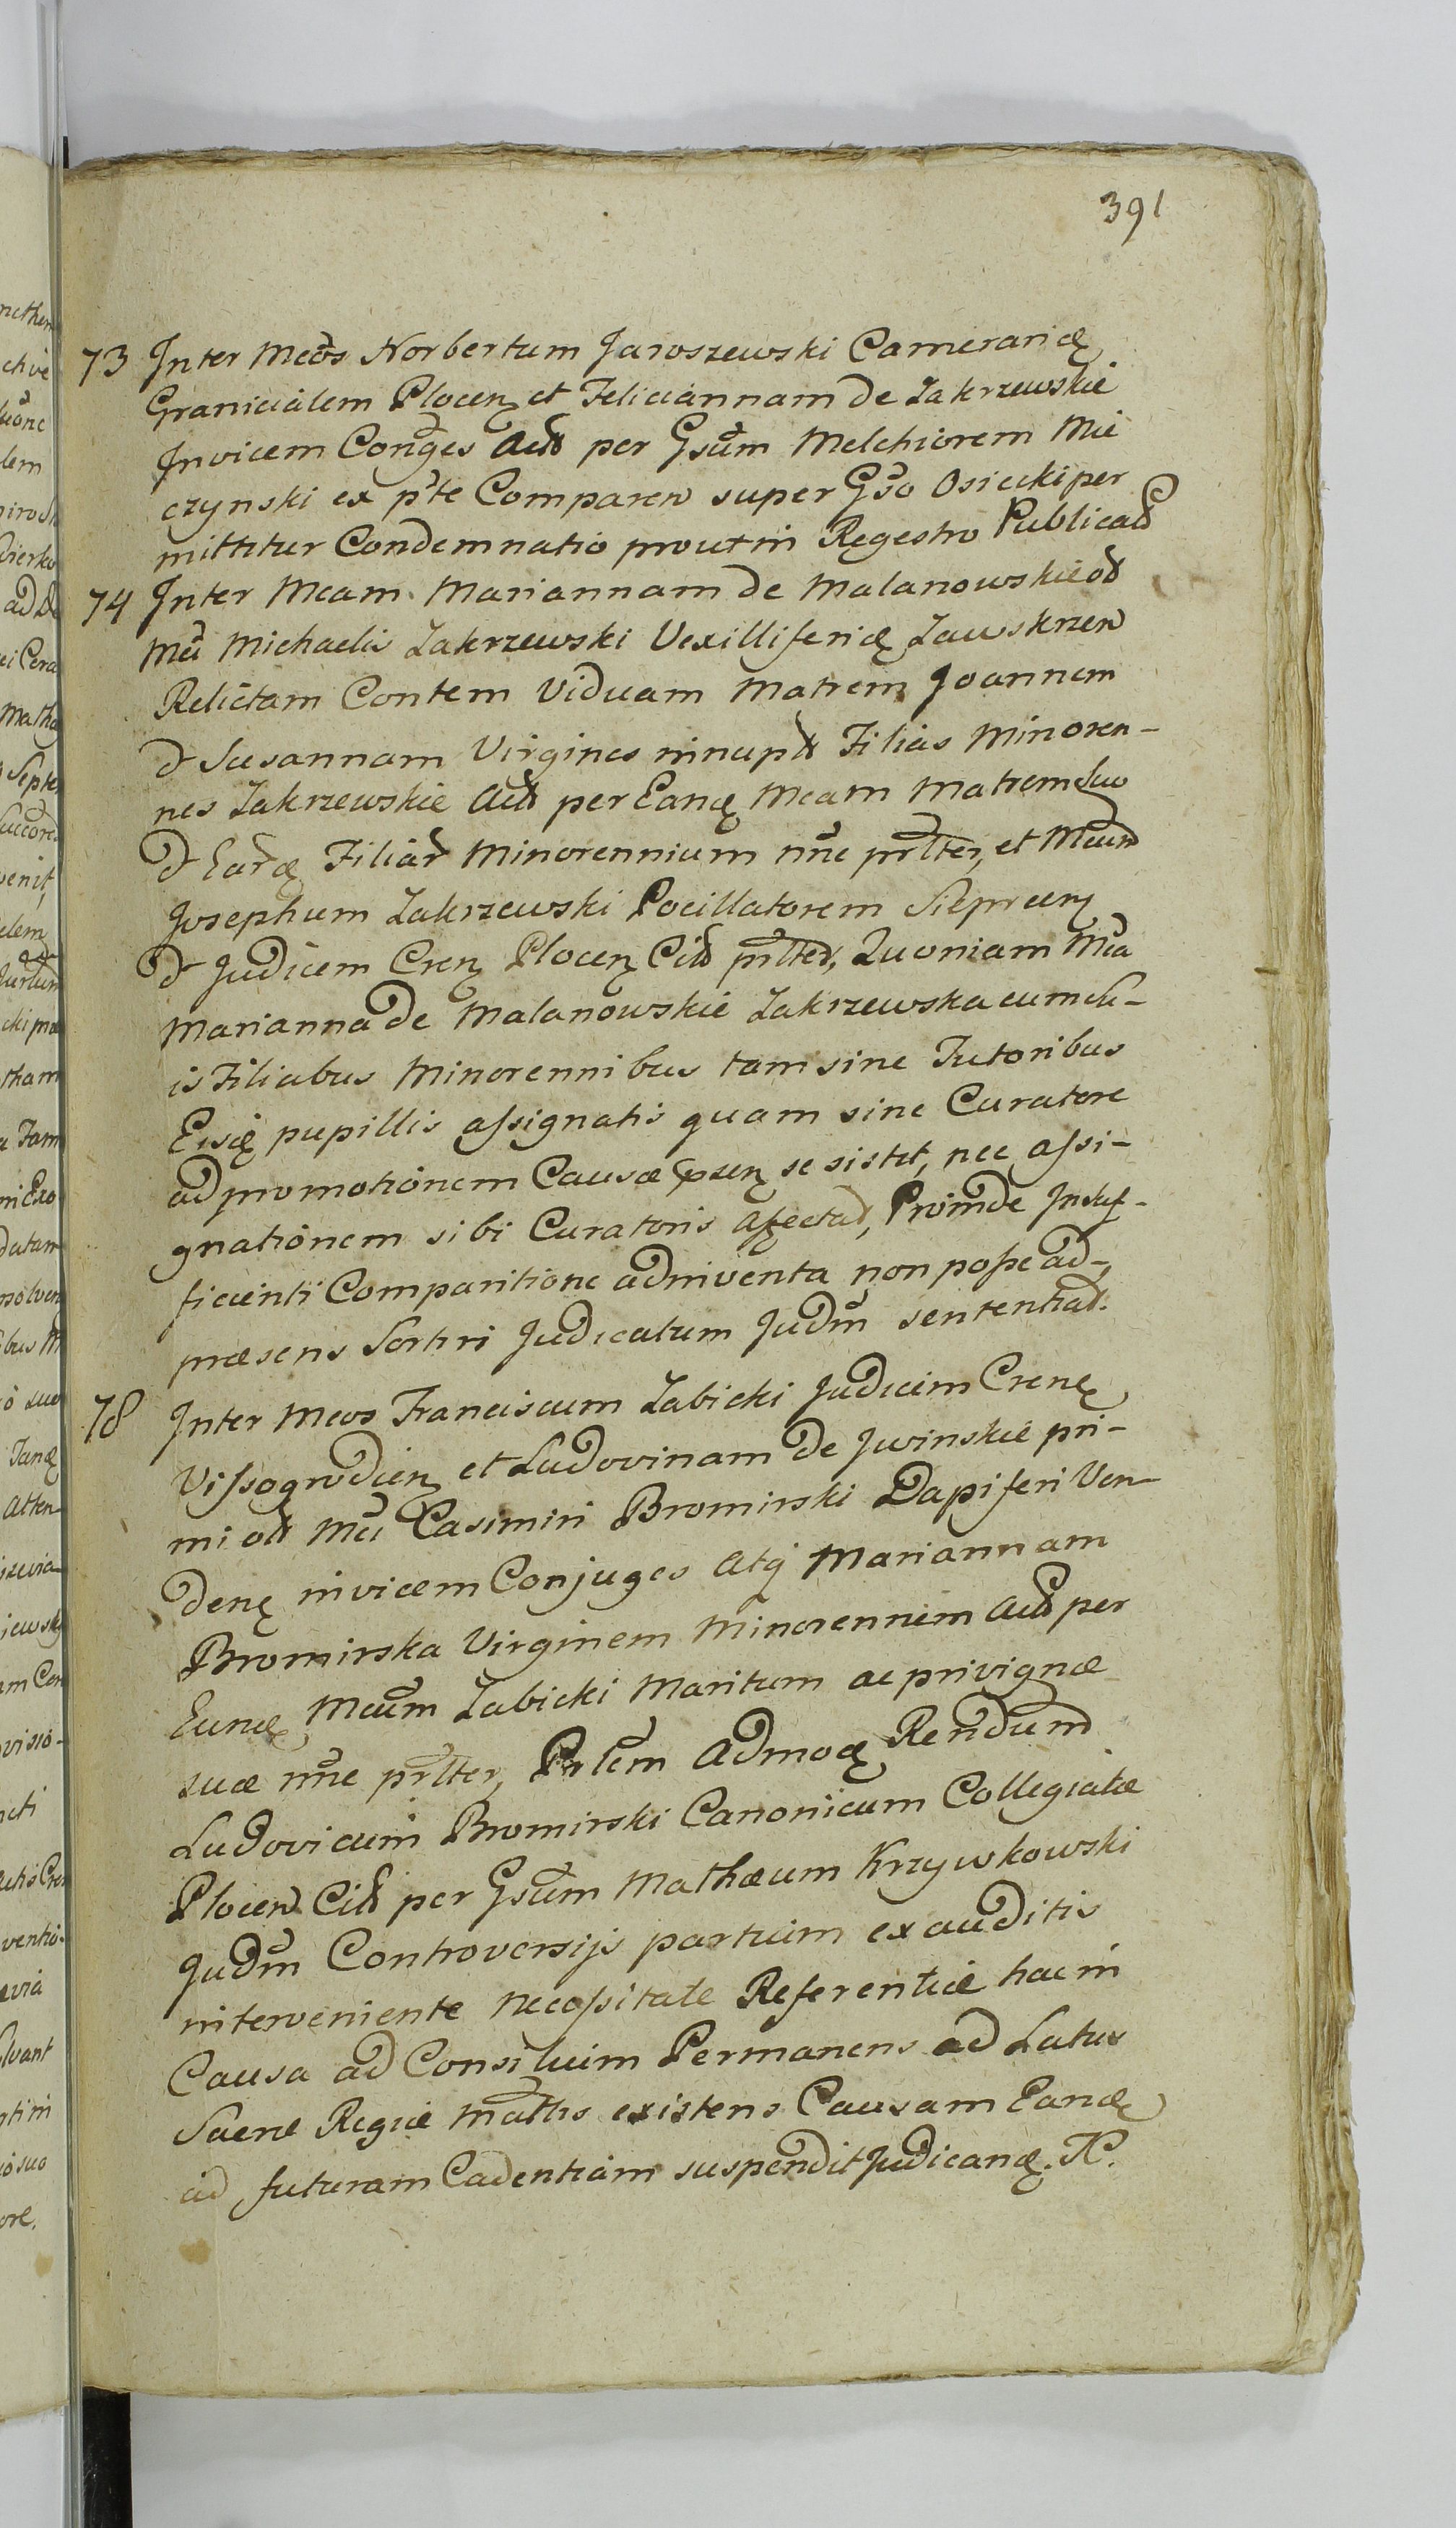 391
73 Inter Mcos Norbertum Jaroszewski Camerarią
Granicialem Plocen et Feliciannam de Zakrzewskie
Invicem Conges Act per Gsum Melchiorem Mie
czynski ex pte Comparen super Gso Osiecki per
mittitur Condemnatio prout in Regestro Publicat
74 Inter Mcam Mariannam de Malanowskie od
Mci Michaelis Zakrzewski Vexilliferią Zawskrzen
Relictam Contem Viduam Matrem Joannem
d Susannam Virgines innupt Filias Minoren-
nes Zakrzewskie Act per Eanę Mcam Matrem suo
d Earę Filiar Minorennium nne prlter, et Mcum
Josephum Zakrzewski Pocillatorem Sieprcen
d Judicem Cren Plocen Cit prlter, Quoniam Mca
Marianna de Malanowskie Zakrzewska cum su-
is Filiabus Minorennibus tam sine Tutoribus
Eisdę pupillis assignatis quam sine Curatore
ad promotionem Causæ psen se sistit, nec assi-
gnationem sibi Curatoris affectat, Proinde Insuf-
ficienti Comparitione adinventa non posse ad
præsens Sortiri Judicatum Judm sententiat.
78 Inter Mcos Franciscum Zabicki Judicem Crenę
Vissogrodien et Ludovinam de Jwinskie pri-
mi od Mci Casimiri Bromirski Dapiferi Ven-
denę invicem Conjuges Atq Mariannam
Bromirska Virginem Minorennem Act per
Eundę Mcum Zabicki Maritum ac privignæ
suæ nne prlter, Prlem Admoę Rendum
Ludovicum Bromirski Canonicum Collegiatæ
Plocen Cit per Gsum Mathæum Krzywkowski
Judm Controversijs partium exauditis
interveniente necessitate Referentiæ hac in
Causa ad Consilium Permanens ad Latus
Sacræ Regiæ Mattis existens Causam Eandę
ad futuram Cadentiam suspendit Judicandę. N.